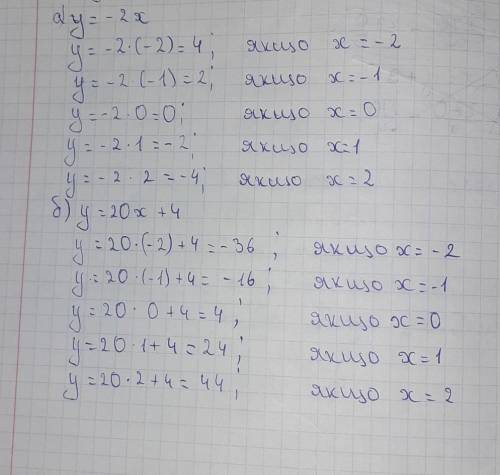 а) y = -2x
y = -2·(-2) = 4; якщо x = -2
y = -2·(-1) = 2; якщо x = -1
y = -2·0 = 0; якщо x = 0
y = -2·1 = -2; якщо x = 1
y = -2·2 = -4; якщо x = 2
б) y = 20x + 4
y = 20·(-2) + 4 = -36; якщо x = -2
y = 20·(-1) + 4 = -16; якщо x = -1
y = 20·0 + 4 = 4; якщо x = 0
y = 20·1 + 4 = 24; якщо x = 1
y = 20·2 + 4 = 44; якщо x = 2